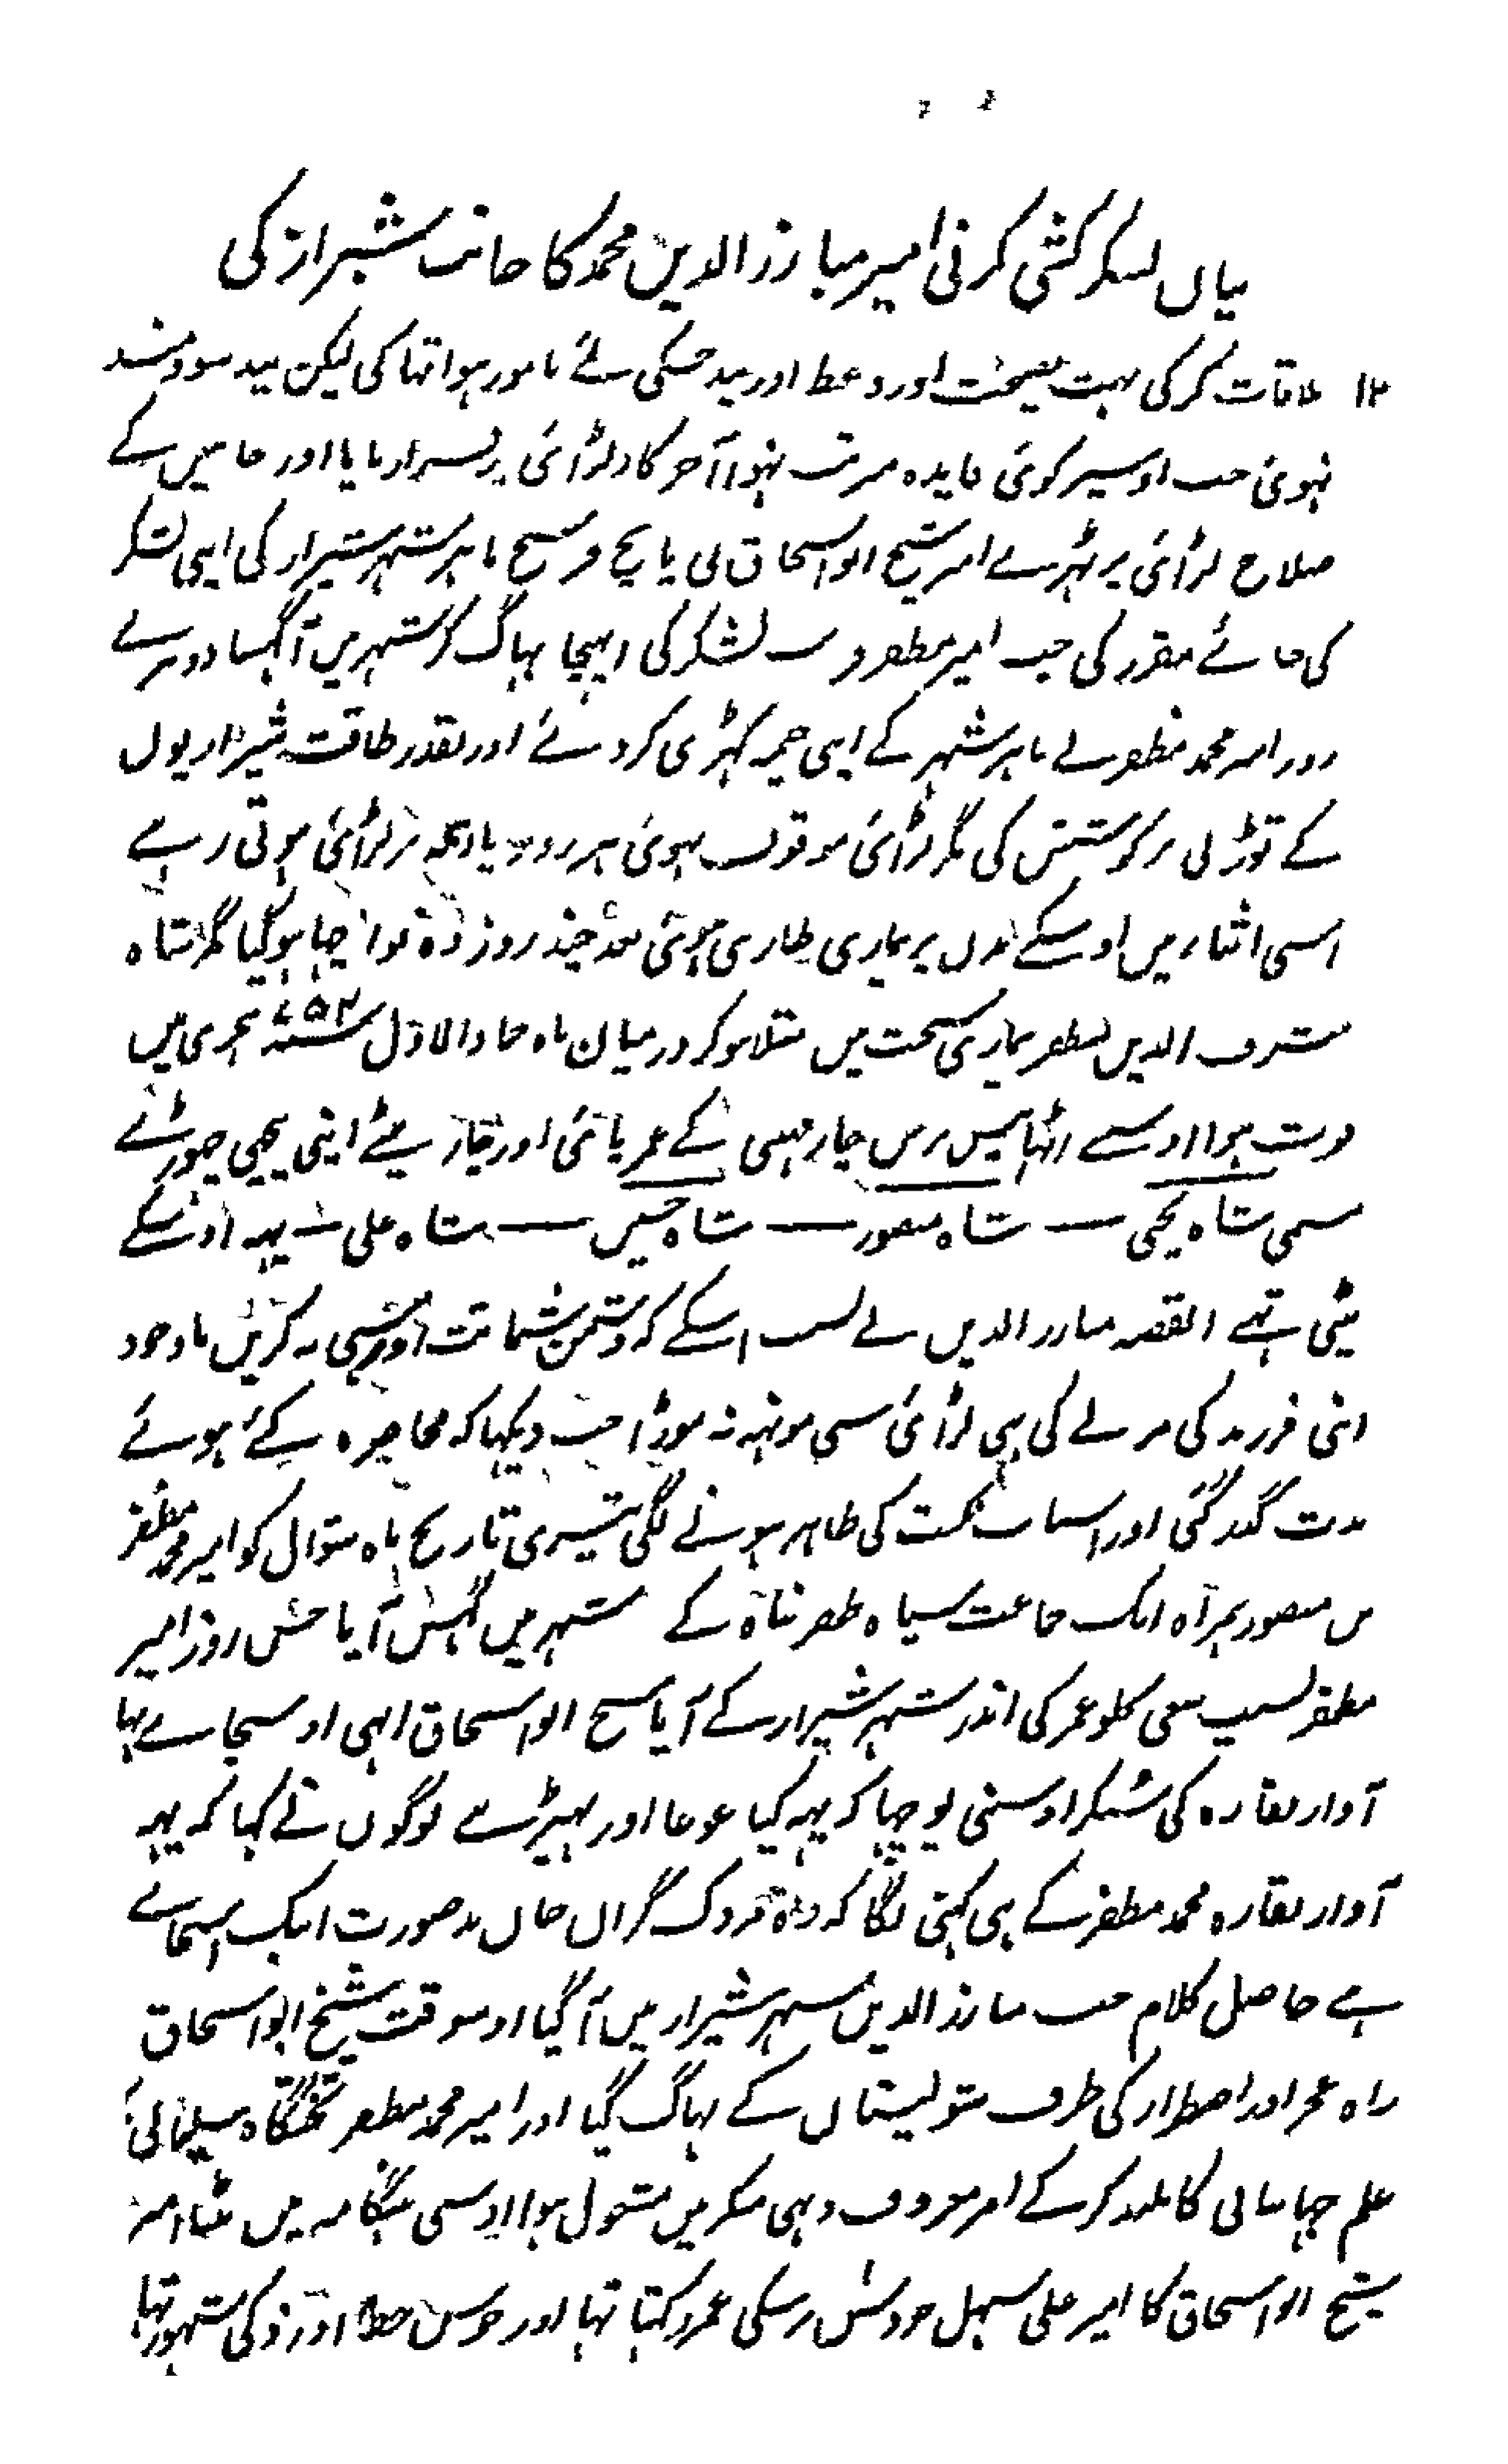 بیان لشکر کشی کرنی امیر مبارز الدین محمد کا جانب شیراز کی
۱۲ ملاقات کر کی بہت نصیحت اور وعظ اور پند جسکی لئے مامور ہوا تہا کی لیکن پند سودمند
نہوئی جب اوسپر کوئی فایدہ مرتب نہوا آخر کار لڑائی پر قرار پایا اور جانبین کے
صلاح لڑائی پر ٹہرے امیر شیخ ابو اسحاق نی پانچ فرسخ باہر شہر شیراز کی اپنی لشکر
کی جائے مقرر کی جب امیر مظفر لشکر کی پہنچا بہاگ کر شہر میں آ گہسا دوسرے
روز امیر محمد مظفر نے باہر شہر کے اپنی خیمہ کہڑی کر دئے اور بقدر طاقت شیرازیوں
کے توڑنی پر کوشش کی مگر لڑائی موقوف ہوئی ہر روز دروازہ پر لڑائی ہوتی رہے
اسی اثناء میں اوسکے بدن پر بیماری طاری ہوئی بعد چند روز وہ تو اچہا ہو گیا مگر شاہ
شرف الدین مظفر بیماری سخت میں مبتلا ہو کر درمیان ماہ جماد الاول سنہ ۷۵۴ ہجری میں
فوت ہوا اوسے اٹہائیس برس چار مہینی کے عمر پائی اور چار بیٹے اپنی پیچہی چہوڑے
مسمی شاہ یحی — شاہ منصور — شاہ حسین — شاہ علی — یہہ اوسکے
بیٹی تہے القصہ مبارز الدین نے بسبب اسکے کہ دشمن شماتت اور ہنسی نہ کریں باوجود
اپنی فرزند کی مرنے کی بہی لڑائی سی مونہہ نہ موڑا جب دیکہا کہ محاصرہ کئے ہوئے
مدت گذر گئی اور اسباب نکبت کی ظاہر ہونے لگی تیسری تاریخ ماہ شوال کو امیر محمد مظفر
بن منصور ہمراہ ایک جماعت سپاہ ظفر پناہ کے شہر میں گہس آیا جس روز امیر
مظفر بسبب سعی کلو عمر کی اندر شہر شیراز کے آیا شیخ ابو اسحاق ابہی اوسیجا ے تہا
آواز نقارہ کی سنکر اوسنی پوچہا کہ یہہ کیا غوغا اور بہیڑ ہے لوگوں نے کہا کہ یہہ
آواز نقارہ محمد مظفر کے ہی کہنی لگا کہ وہ مردک گراں جان بد صورت ابتک اسیجا ے
ہے حاصل کلام جب مبارز الدین شہر شیراز میں آ گیا اوسوقت شیخ ابو اسحاق
راہ عجز اور اضطرار کی طرف شولستان کے بہاگ گیا اور امیر محمد مظفر تختگاہ سلیمانی
علم جہانبانی کا بلند کر کے امر معروف و نہی منکر میں مشغول ہوا اوسی ہنگامہ میں بیٹا امیر
شیخ ابو اسحاق کا امیر علی سہل جو دس برسکی عمر رکہتا تہا اور خوش خط اور ذکی مشہور تہا